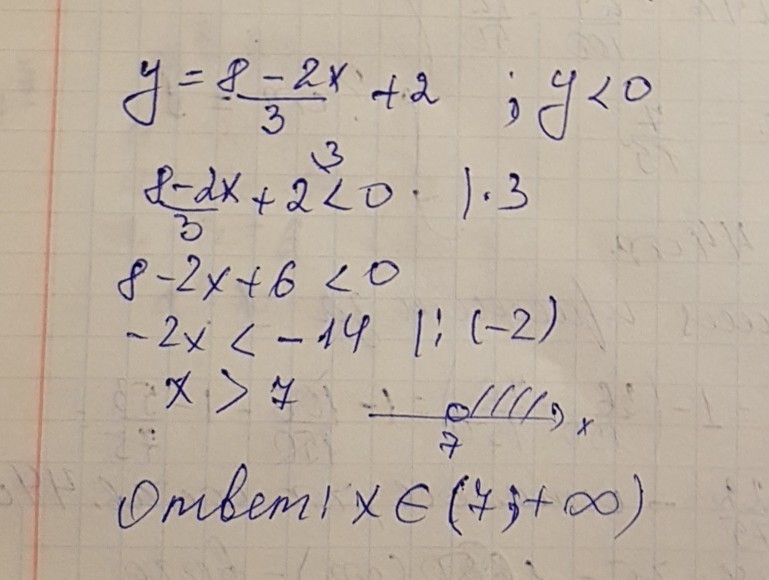 y = (8 - 2x)/3 + 2 ; y < 0
(8-2x)/3 + 2 ⁽³ < 0 | · 3
8 - 2x + 6 < 0
- 2x < - 14 | : (-2)
x > 7
7 x
Ответ: x ∈ (7; +∞)